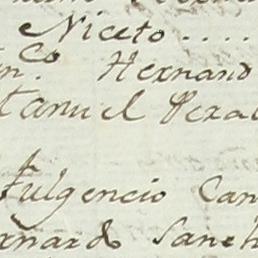 Niceto ....
n.co Hernand
anuel Peral
Fulgencio Can
rnardo Sanch